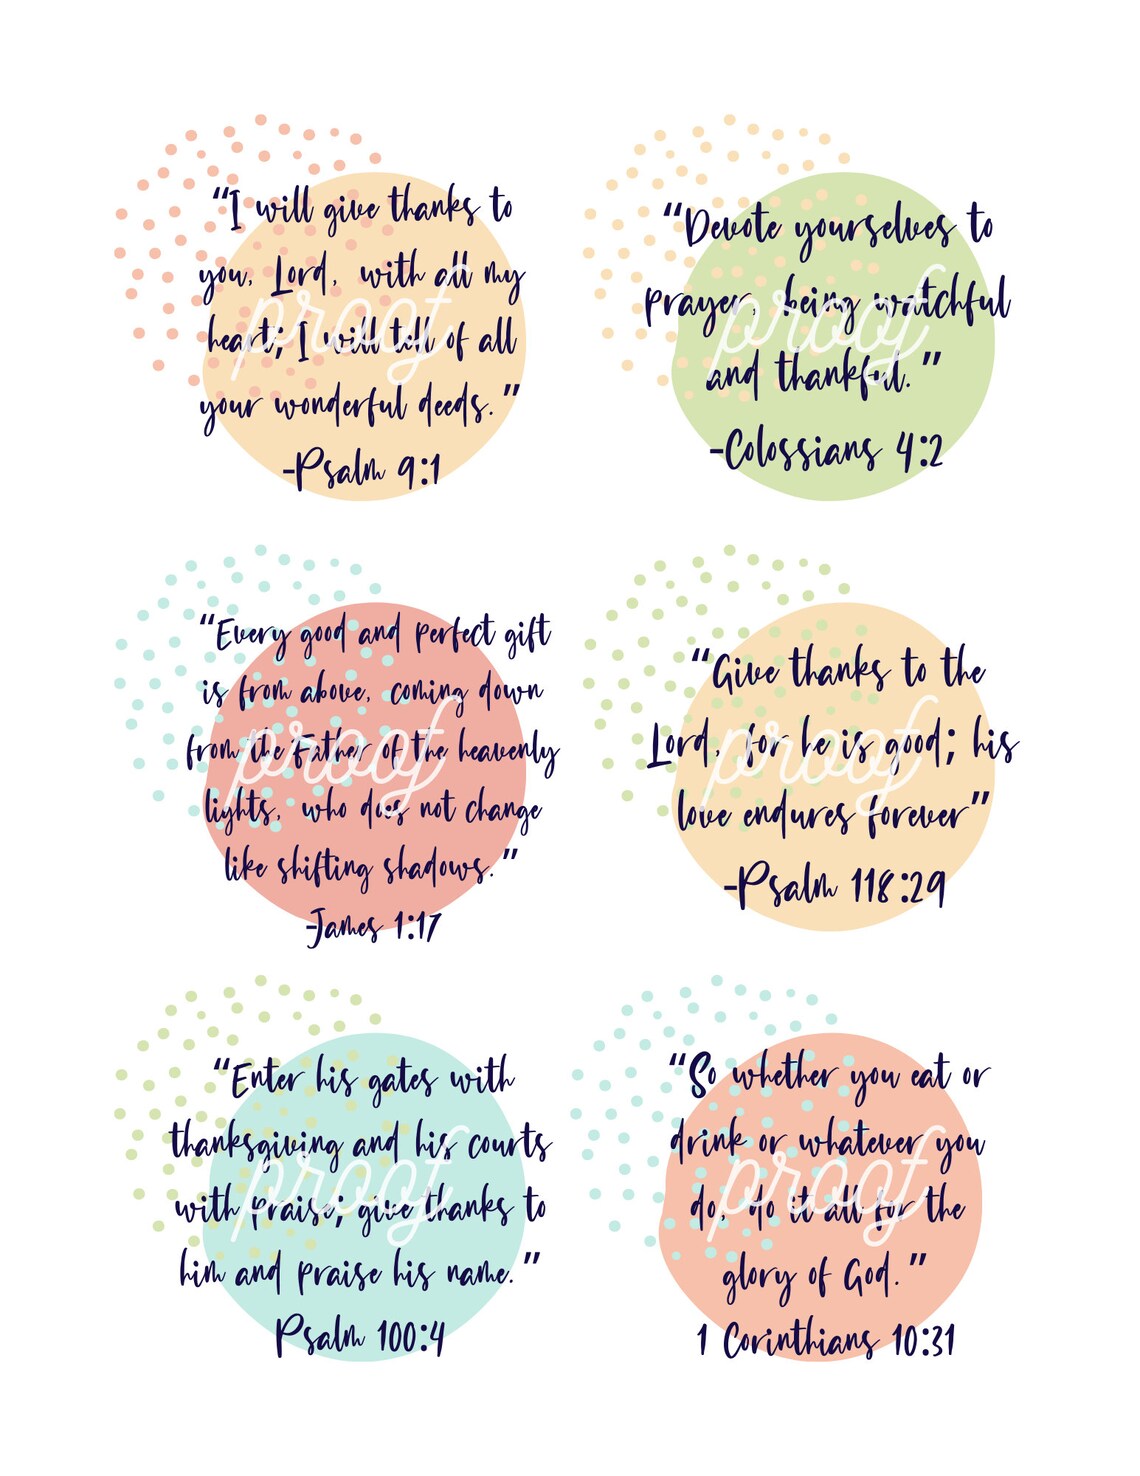 “I will give thanks to
you, Lord, with all my
heart; I will tell of all
your wonderful deeds.”
-Psalm 9:1
proof
“Devote yourselves to
prayer, being watchful
and thankful.”
-Colossians 4:2
proof
“Every good and perfect gift
is from above, coming down
from the Father of the heavenly
lights, who does not change
like shifting shadows.”
-James 1:17
proof
“Give thanks to the
Lord, for he is good; his
love endures forever”
-Psalm 118:29
proof
“Enter his gates with
thanksgiving and his courts
with praise; give thanks to
him and praise his name.”
Psalm 100:4
proof
“So whether you eat or
drink or whatever you
do, do it all for the
glory of God.”
1 Corinthians 10:31
proof